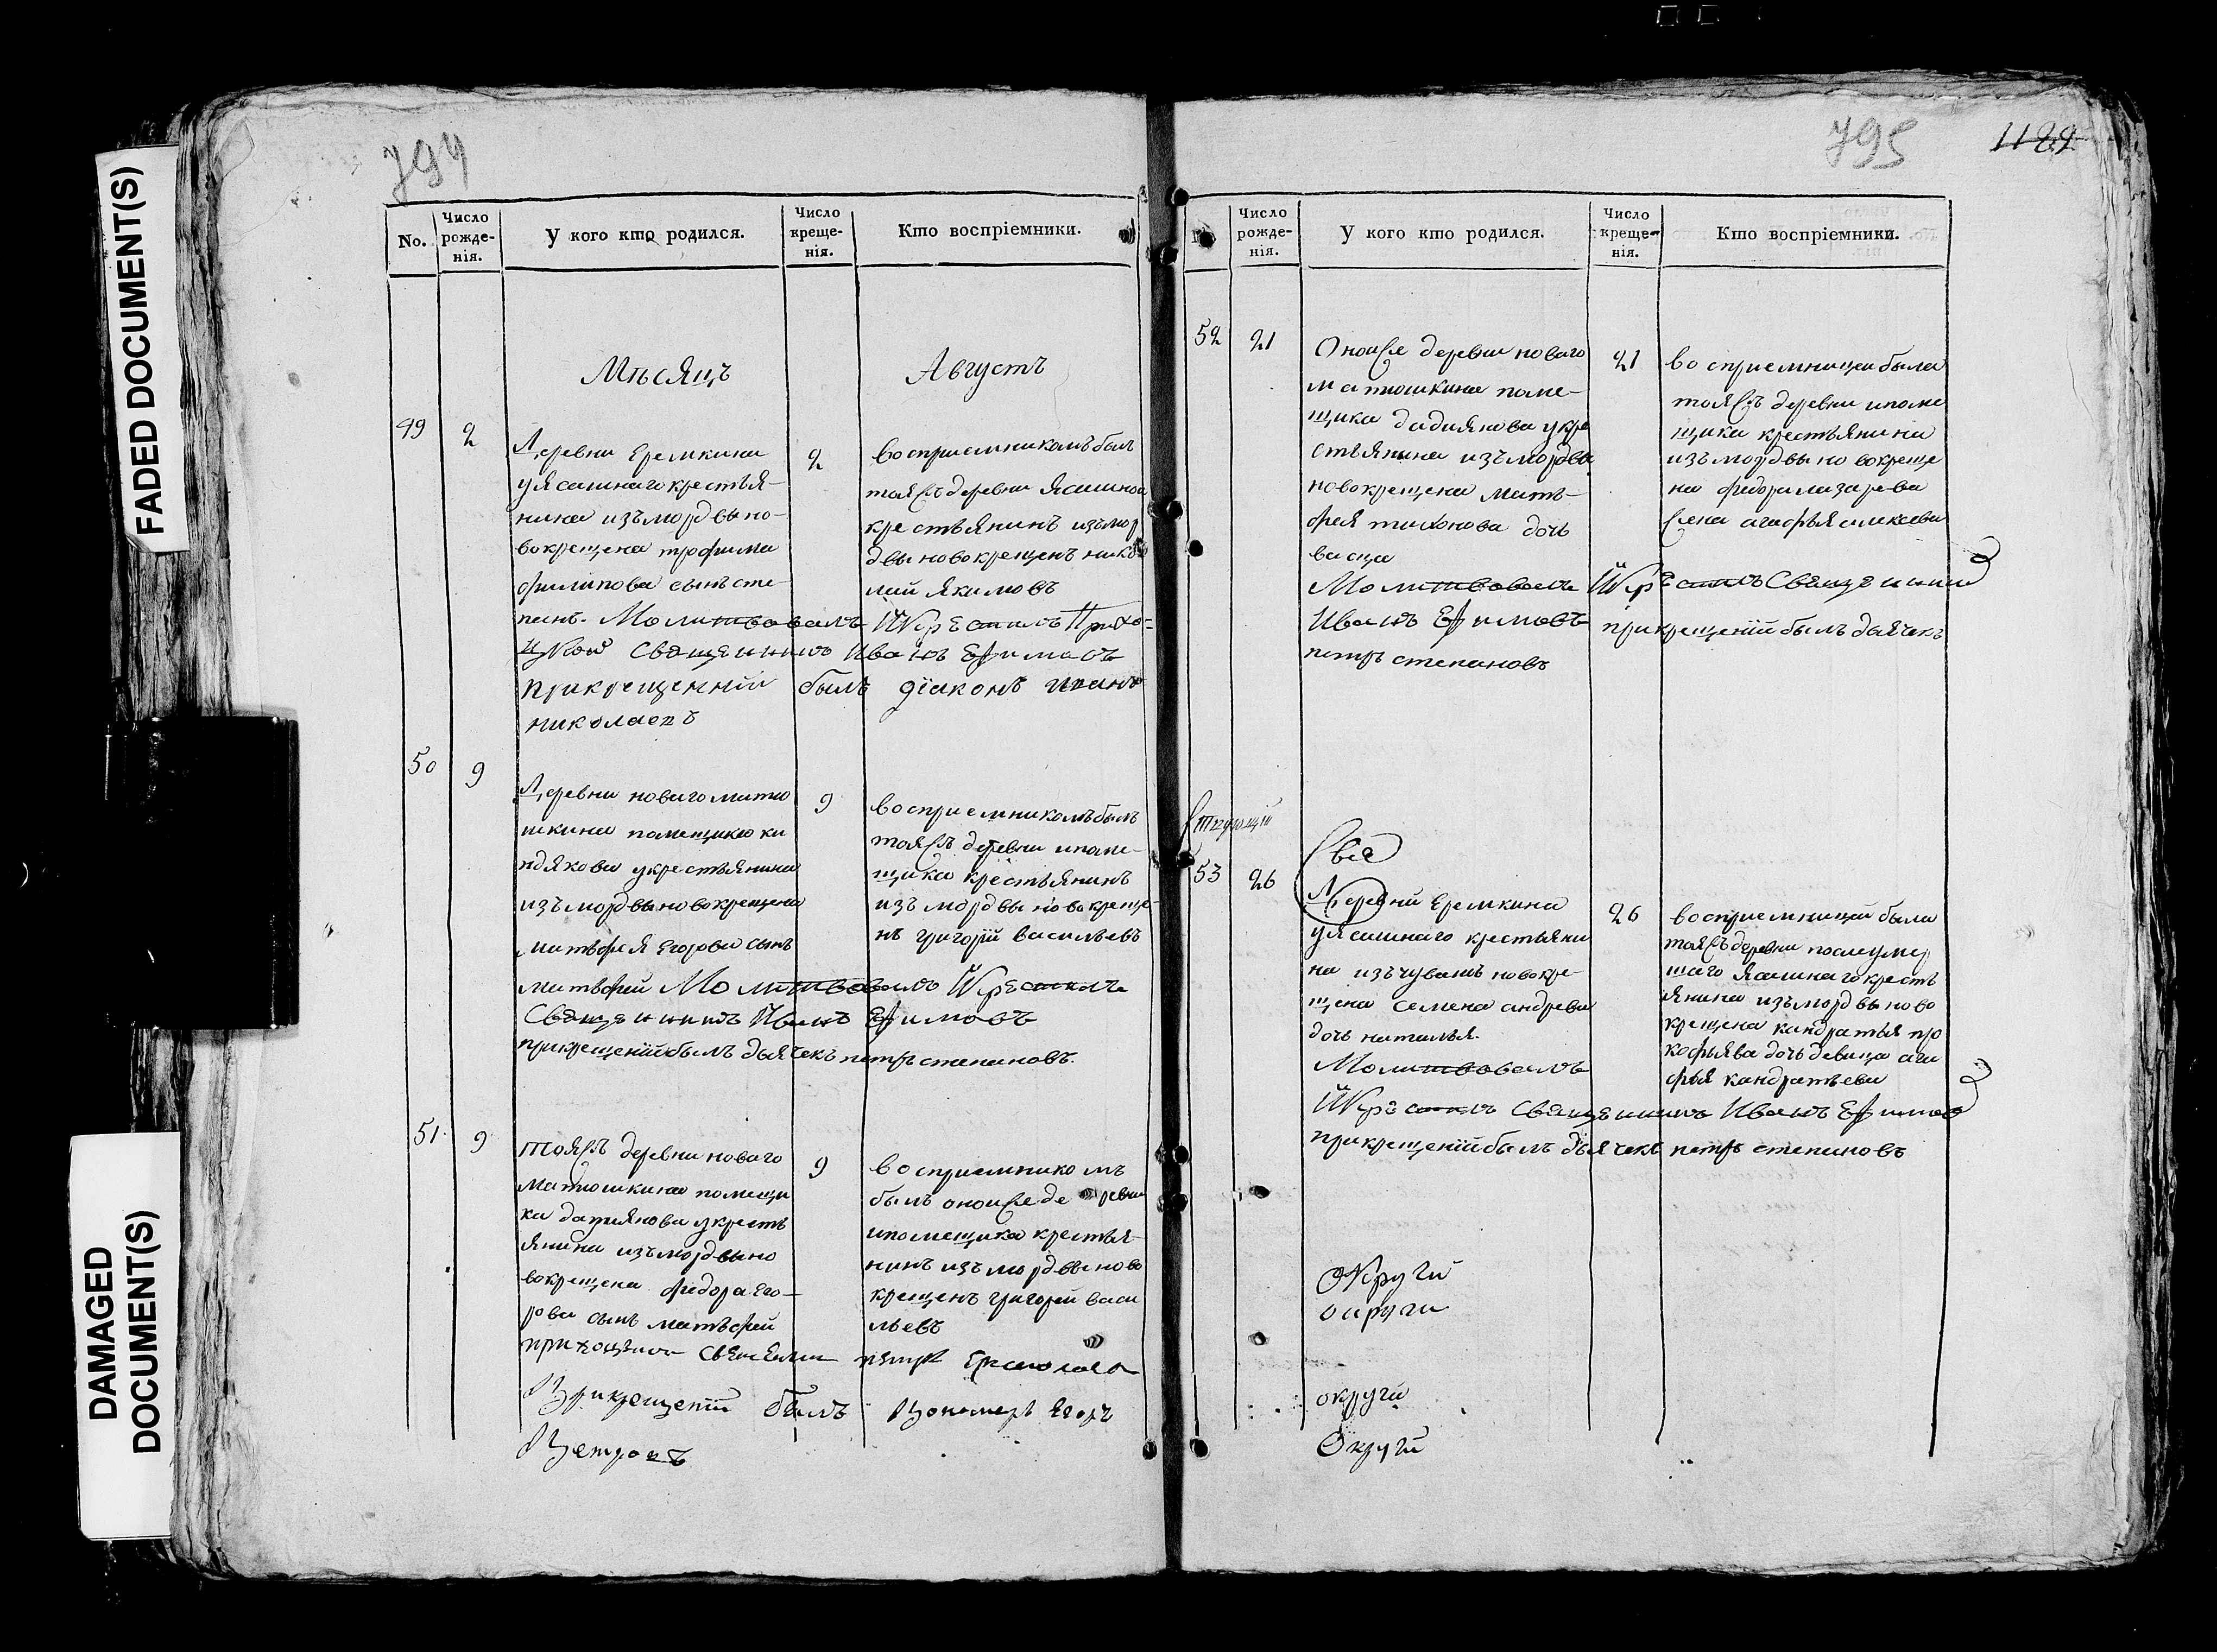 FADED DOCUMENT(S)
DAMAGED
DOCUMENT(S)
794
No.
Число рожде-нія.
У кого кто родился.
Число креще-нія.
Кто воспріемники.
Мѣсяцъ Августъ
49 2
Деревни Еремкина
уясашнаго крестья-
нина изъ мордвы но-
вокрещена трофима
филипова сынъ сте-
панъ. Молитвовалъ Икрестилъ Прихо=
цкой Священникъ Иванъ Ефимовъ
прикрещенїи былъ дїаконъ иванъ
николаевъ
2
восприемникомъ былъ
тояжъ деревни ясашной
крестьянинъ изъ мор
двы новокрещенъ нико
лай якимовъ
50 9
Деревни новаго матю
шкина помещика ки
ндякова укрестьянина
изъ мордвы новокрещена
матвфея Егорова сынъ
матвфей Молитвовалъ Икрестилъ
Священникъ Иванъ Ефимовъ
прикрещенїи былъ дьячекъ петръ степановъ.
9
восприемникомъ былъ
тояжъ деревни ипоме-
щика крестьянинъ
изъ мордвы новокреще-
нъ григорїй васильевъ
51 9
тояжъ деревни новаго
матюшкина помещи
ка дадиянова укресть
янина изъ мордвы но
вокрещена федора Его-
рова сынъ матвфей
петръ
Прикрещенїи былъ Пономарь Егоръ
Петровъ
9
восприемникомъ
былъ оноиже деревни
ипомещика крестья-
нинъ изъ мордвы ново
крещенъ григорей васи
льевъ
795
1129
Число рожде-нія.
У кого кто родился.
Число креще-нія.
Кто воспріемники.
52 21
Оноиже деревни новаго
матюшкина поме-
щика дадиянова укре
стьянина изъ мордвы
новокрещена матв-
фея тихонова дочь
васца
Молитвовалъ Икрестилъ Священникъ
Иванъ Ефимовъ прикрещенїи былъ дьячекъ
петръ степановъ
21
восприемницеи была
тояжъ деревни ипоме
щика крестьянина
изъ мордвы новокреще
на федора лазарева
жена агафья алексева
53 26
Деревни Еремкина
уясашнаго крестьяни
на изъ чувашъ новокре-
щена семена андреева
дочь наталья.
Молитвовалъ
Икрестилъ Священникъ Иванъ Ефимовъ
прикрещенїи былъ дьячекъ петръ степановъ
26
восприемницеи была
тояжъ деревни послеумер
шаго ясашнаго кресть
янина изъ мордвы ново
крещена кандратья про
кофьява дочь девица ага
фья кандратьева
Округи
округи
округи
Округи